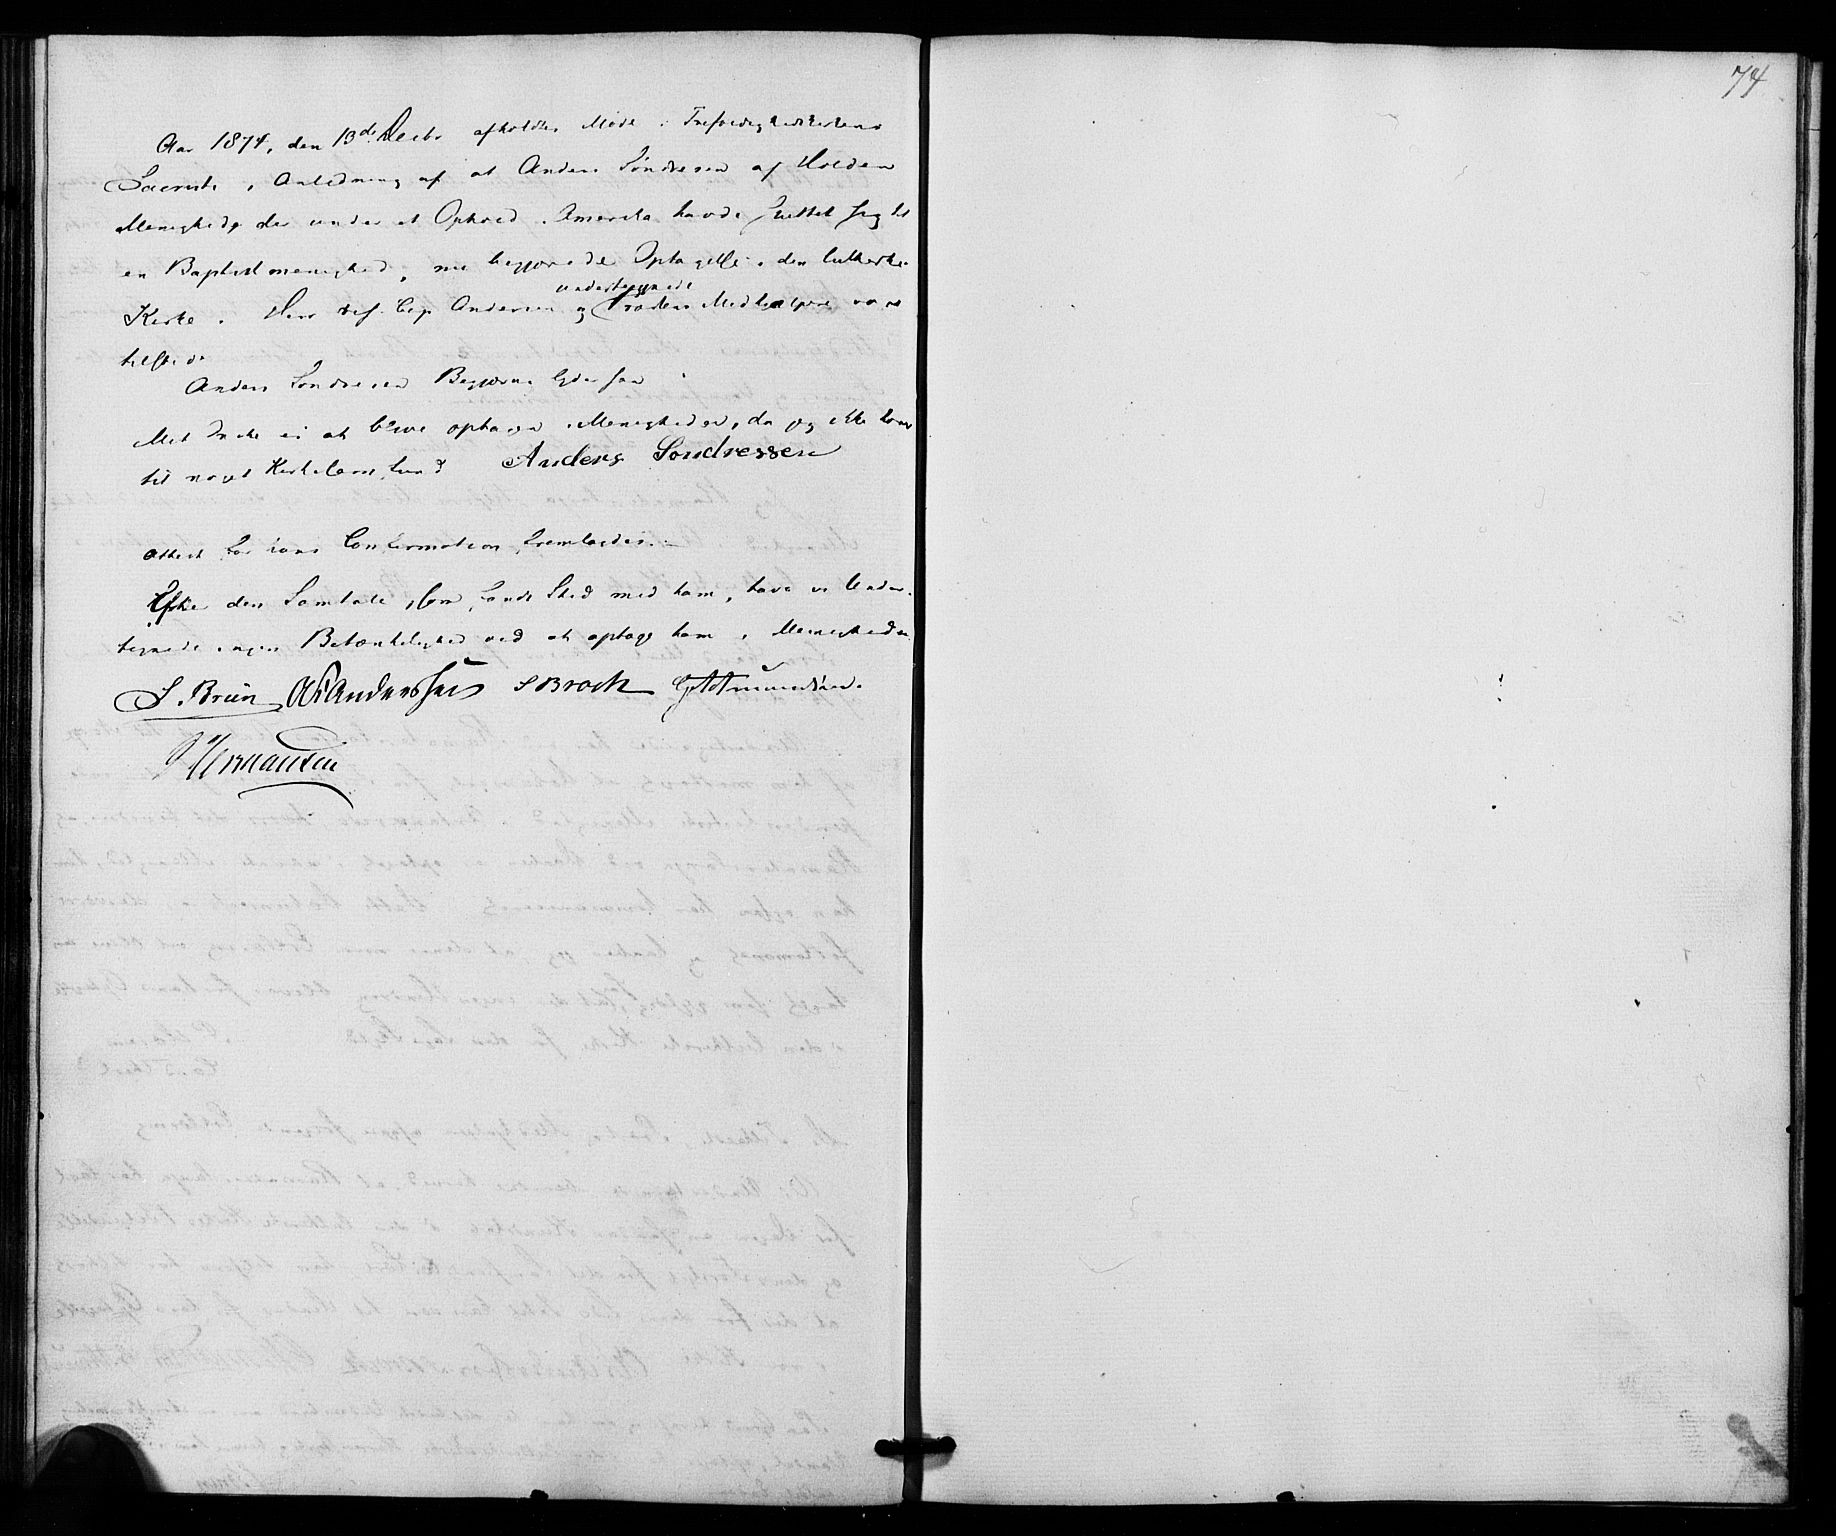 74
Aar 1874, den 13de Decbr afholdtes Møde i Trefoldighedskirkens
Sacristi i Anledning af at Anders Søndresen af Holden
Menighed, der under et Ophold i Amerika havde sluttet sig til
en Baptistmenighed, nu begjærede Optagelse i den lutherske
Kirke. Herr Cap Andersen og undertegnede Præstens Medhjælpere vare
tilstede
Anders Søndresen Begjæring lyder saa
Mit Ønske er at blive optagen i Menigheden, da jeg ikke hører
til noget Kirkesamfund Anders Sondressen
Attest for hans Confirmation fremlagdes.
Efter den Samtale, som fandt Sted med ham, have vi Under-
tegnede ingen Betænkelighed ved at optage ham i Menigheden
S. Bruun Andersen S Brock
Hermansen